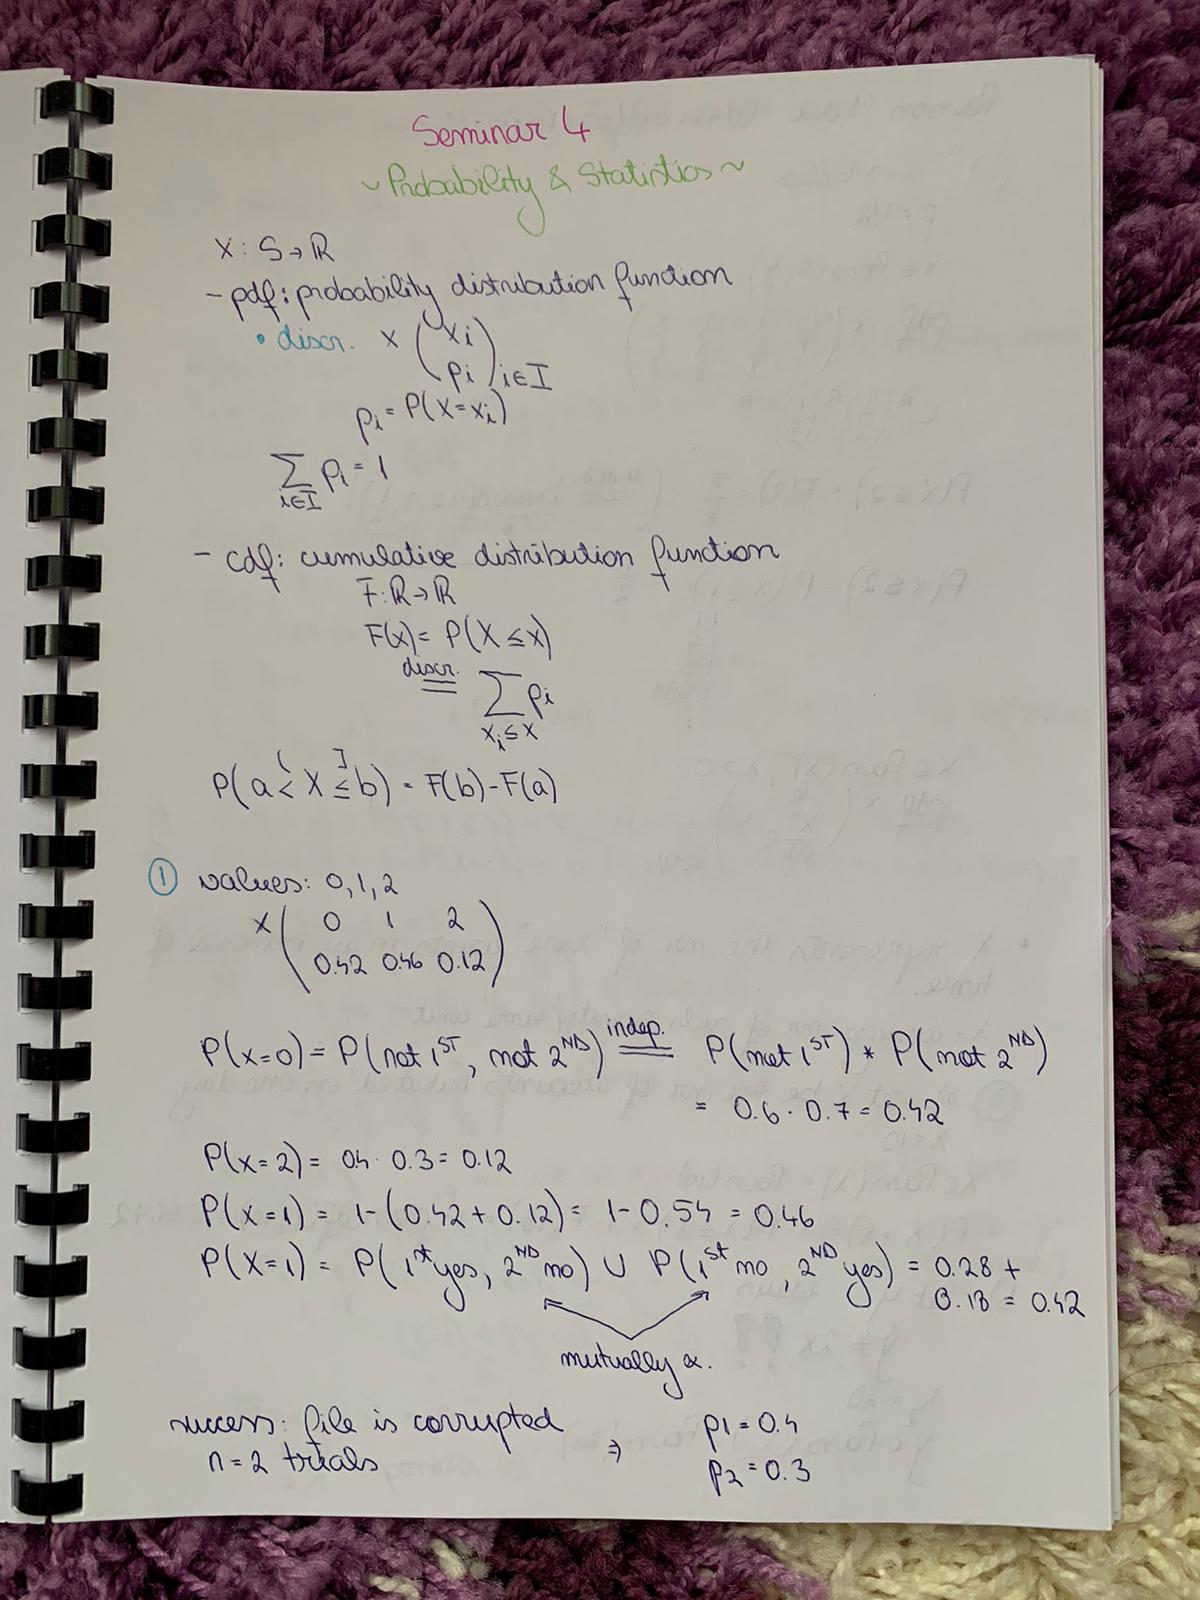 Seminar 4
~ Probability & Statistics ~
X: S → ℝ
- pdf: probability distribution function
• discr. X ( xi
pi ) i∈I
pi = P(X=xi)
∑ pi = 1
i∈I
- cdf: cumulative distribution function
F: ℝ → ℝ
F(x) = P(X ≤ x)
discr.
= ∑ pi
xi ≤ x
( ]
P(a < X ≤ b) = F(b) - F(a)
① values: 0, 1, 2
X ( 0 1 2
0.42 0.46 0.12 )
P(x=0) = P(not 1ST, not 2ND) indep. = P(not 1ST) * P(not 2ND)
= 0.6 · 0.7 = 0.42
P(x=2) = 0.4 · 0.3 = 0.12
P(x=1) = 1-(0.42 + 0.12) = 1-0.54 = 0.46
P(X=1) = P(1st yes, 2ND no) ∪ P(1st no, 2ND yes) = 0.28 +
0.18 = 0.42
mutually ex.
success: file is corrupted p1 = 0.4
n = 2 trials ⇒ p2 = 0.3